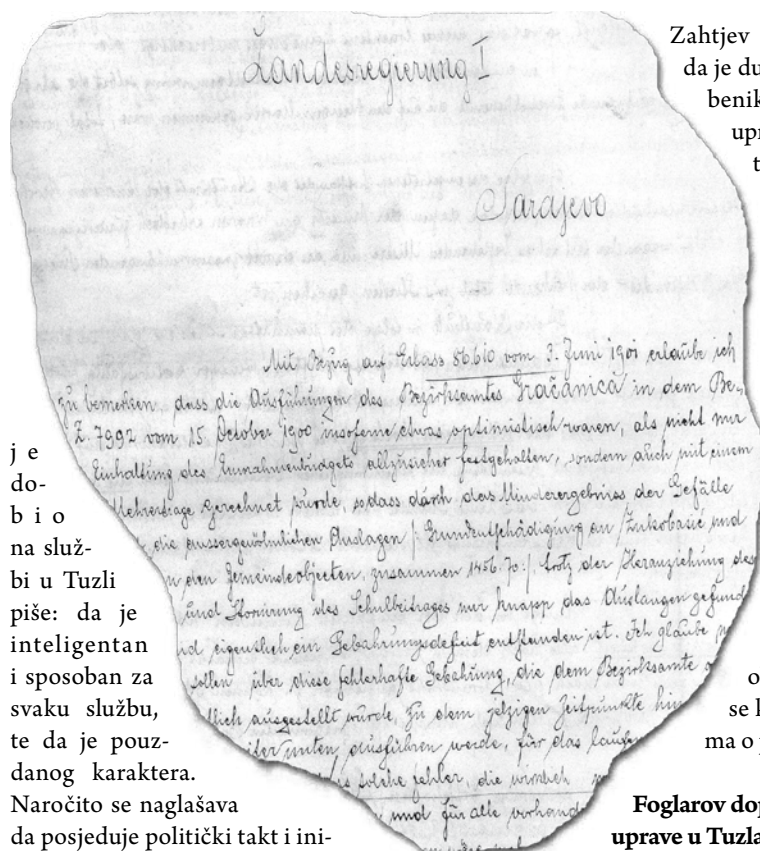 Landesregierung I
Sarajevo
Mit Bezug auf Erlass 56.610 vom 3. Juni 1901 erlaube ich
zu bemerken, dass die Ausführungen des Bezirksamtes Gračanica in dem Be-
Z. 7992 vom 15. October 1900 insoferne etwas optimistisch waren, als nicht nur
Einhaltung des Einnahmenbudgets allzusicher festgehalten, sondern auch mit einem
gerechnet wurde, sodass durch das Minderergebniss der Gefälle
die aussergewöhnlichen Auslagen /: Grundentschädigung an und
den Gemeindeobjecten, zusammen 1456.70 :/, trotz der Heranziehung des
und Stornirung des Schulbeitrages nur knapp das Auslangen gefund
eigentlich ein Gebahrungsdeficit entstanden ist. Ich glaube
sollen über diese fehlerhafte Gebahrung, die dem Bezirksamte
ausgestellt wurde, zu dem jetzigen Zeitpunkte
unten ausführen werde, für das
solche Fehler, die
und für alle
j e
do-
b i o
na služ-
bi u Tuzli
piše: da je
inteligentan
i sposoban za
svaku službu,
te da je pouz-
danog karaktera.
Naročito se naglašava
da posjeduje politički takt i ini-
Zahtjev
da je du
benik
upr
t
o
se k
ma o p
Foglarov dop
uprave u Tuzla